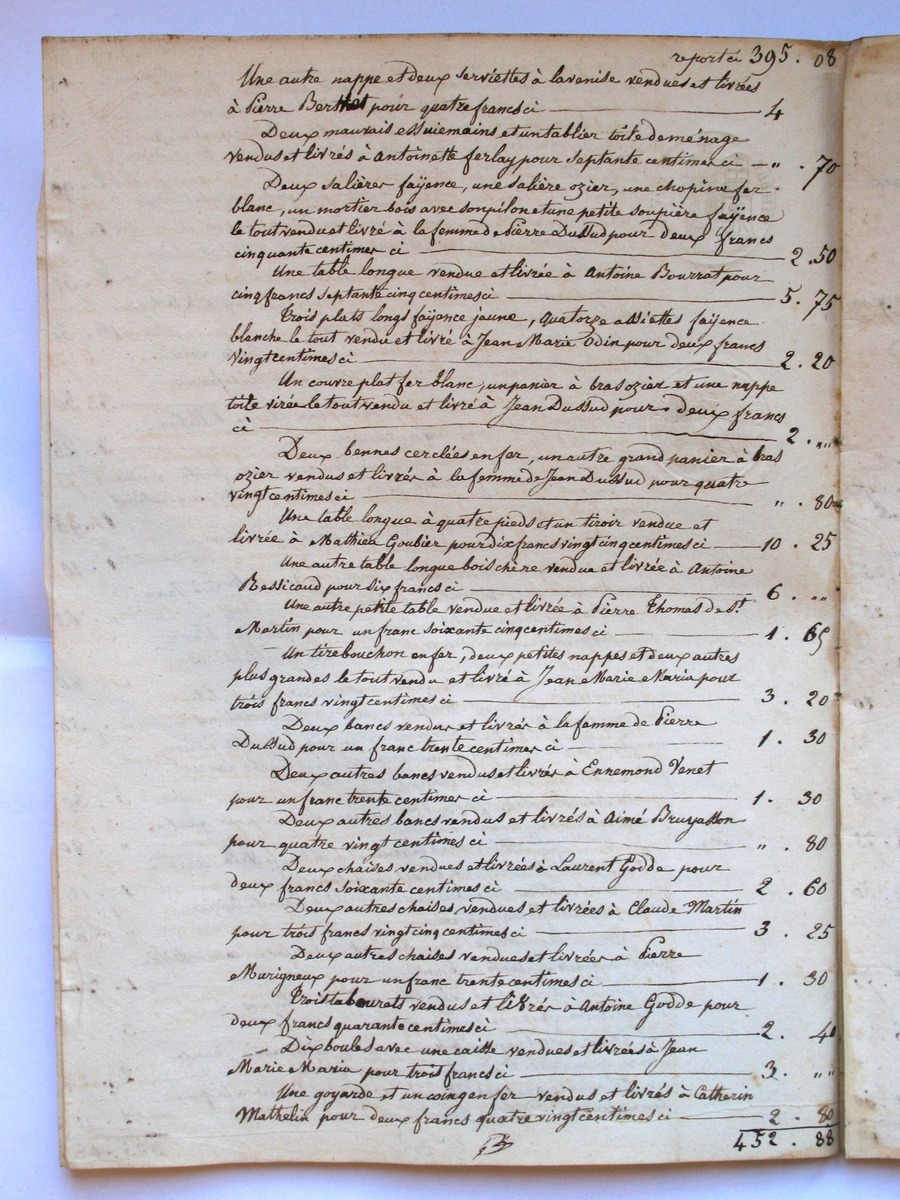 reporté ci 395 . 08
Une autre nappe et deux serviettes à lavenise vendues et livrées
à Pierre Berthet pour quatre francs ci 4
Deux mauvais essuiemains et un tablier toile de ménage
vendus et livrés à Antoinette ferlay pour septante centimes ci " . 70
Deux salières faÿence, une salière ozier, une chopine fer
blanc, un mortier bois avec son pilon et une petite soupière faÿence
le tout vendu et livré à la femme de Pierre Dussud pour deux francs
cinquante centimes ci 2 . 50
Une table longue vendue et livrée à Antoine Bourrat pour
cinq francs septante cinq centimes ci 5 . 75
trois plats longs faÿence jaune, quatorze assiettes faÿence
blanche le tout vendu et livré à Jean Marie Odin pour deux francs
vingt centimes ci 2 . 20
Un couvre plat fer blanc, un panier à bras ozier et une nappe
toile virée le tout vendu et livré à Jean Dussud pour deux francs
ci 2 . "
Deux bennes cerclées en fer, un autre grand panier à bras
ozier vendus et livrés à la femme de Jean Dussud pour quatre
vingt centimes ci " . 80
Une table longue à quatre pieds et un tiroir vendue et
livrée à Mathieu Goubier pour Dix francs vingt cinq centimes ci 10 . 25
Une autre table longue bois chêne vendue et livrée à Antoine
Ressicaud pour six francs ci 6 . "
Une autre petite table vendue et livrée à Pierre Thomas de St
Martin pour un franc soixante cinq centimes ci 1 . 65
Un tirebouchon en fer, deux petites nappes et deux autres
plus grandes le tout vendu et livré à Jean Marie Maria pour
trois francs vingt centimes ci 3 . 20
Deux bancs vendus et livrés à la femme de Pierre
Dussud pour un franc trente centimes ci 1 . 30
Deux autres bancs vendus et livrés à Ennemond Venet
pour un franc trente centimes ci 1 . 30
Deux autres bancs vendus et livrés à Aimé Bruyasson
pour quatre vingt centimes ci " . 80
Deux chaises vendues et livrées à Laurent Godde pour
deux francs soixante centimes ci 2 . 60
Deux autres chaises vendues et livrées à Claude Martin
pour trois francs vingt cinq centimes ci 3 . 25
Deux autres chaises vendues et livrées à Pierre
Murigneux pour un franc trente centimes ci 1 . 30
Trois tabourets vendus et livrés à Antoine Godde pour
deux francs quarante centimes ci 2 . 40
Dix boules avec une caisse vendues et livrées à Jean
Marie Maria pour trois francs ci 3 . "
Une goyarde et un coing en fer vendus et livrés à Catherin
Mathelin pour deux francs quatre vingt centimes ci 2 . 80
452 . 88